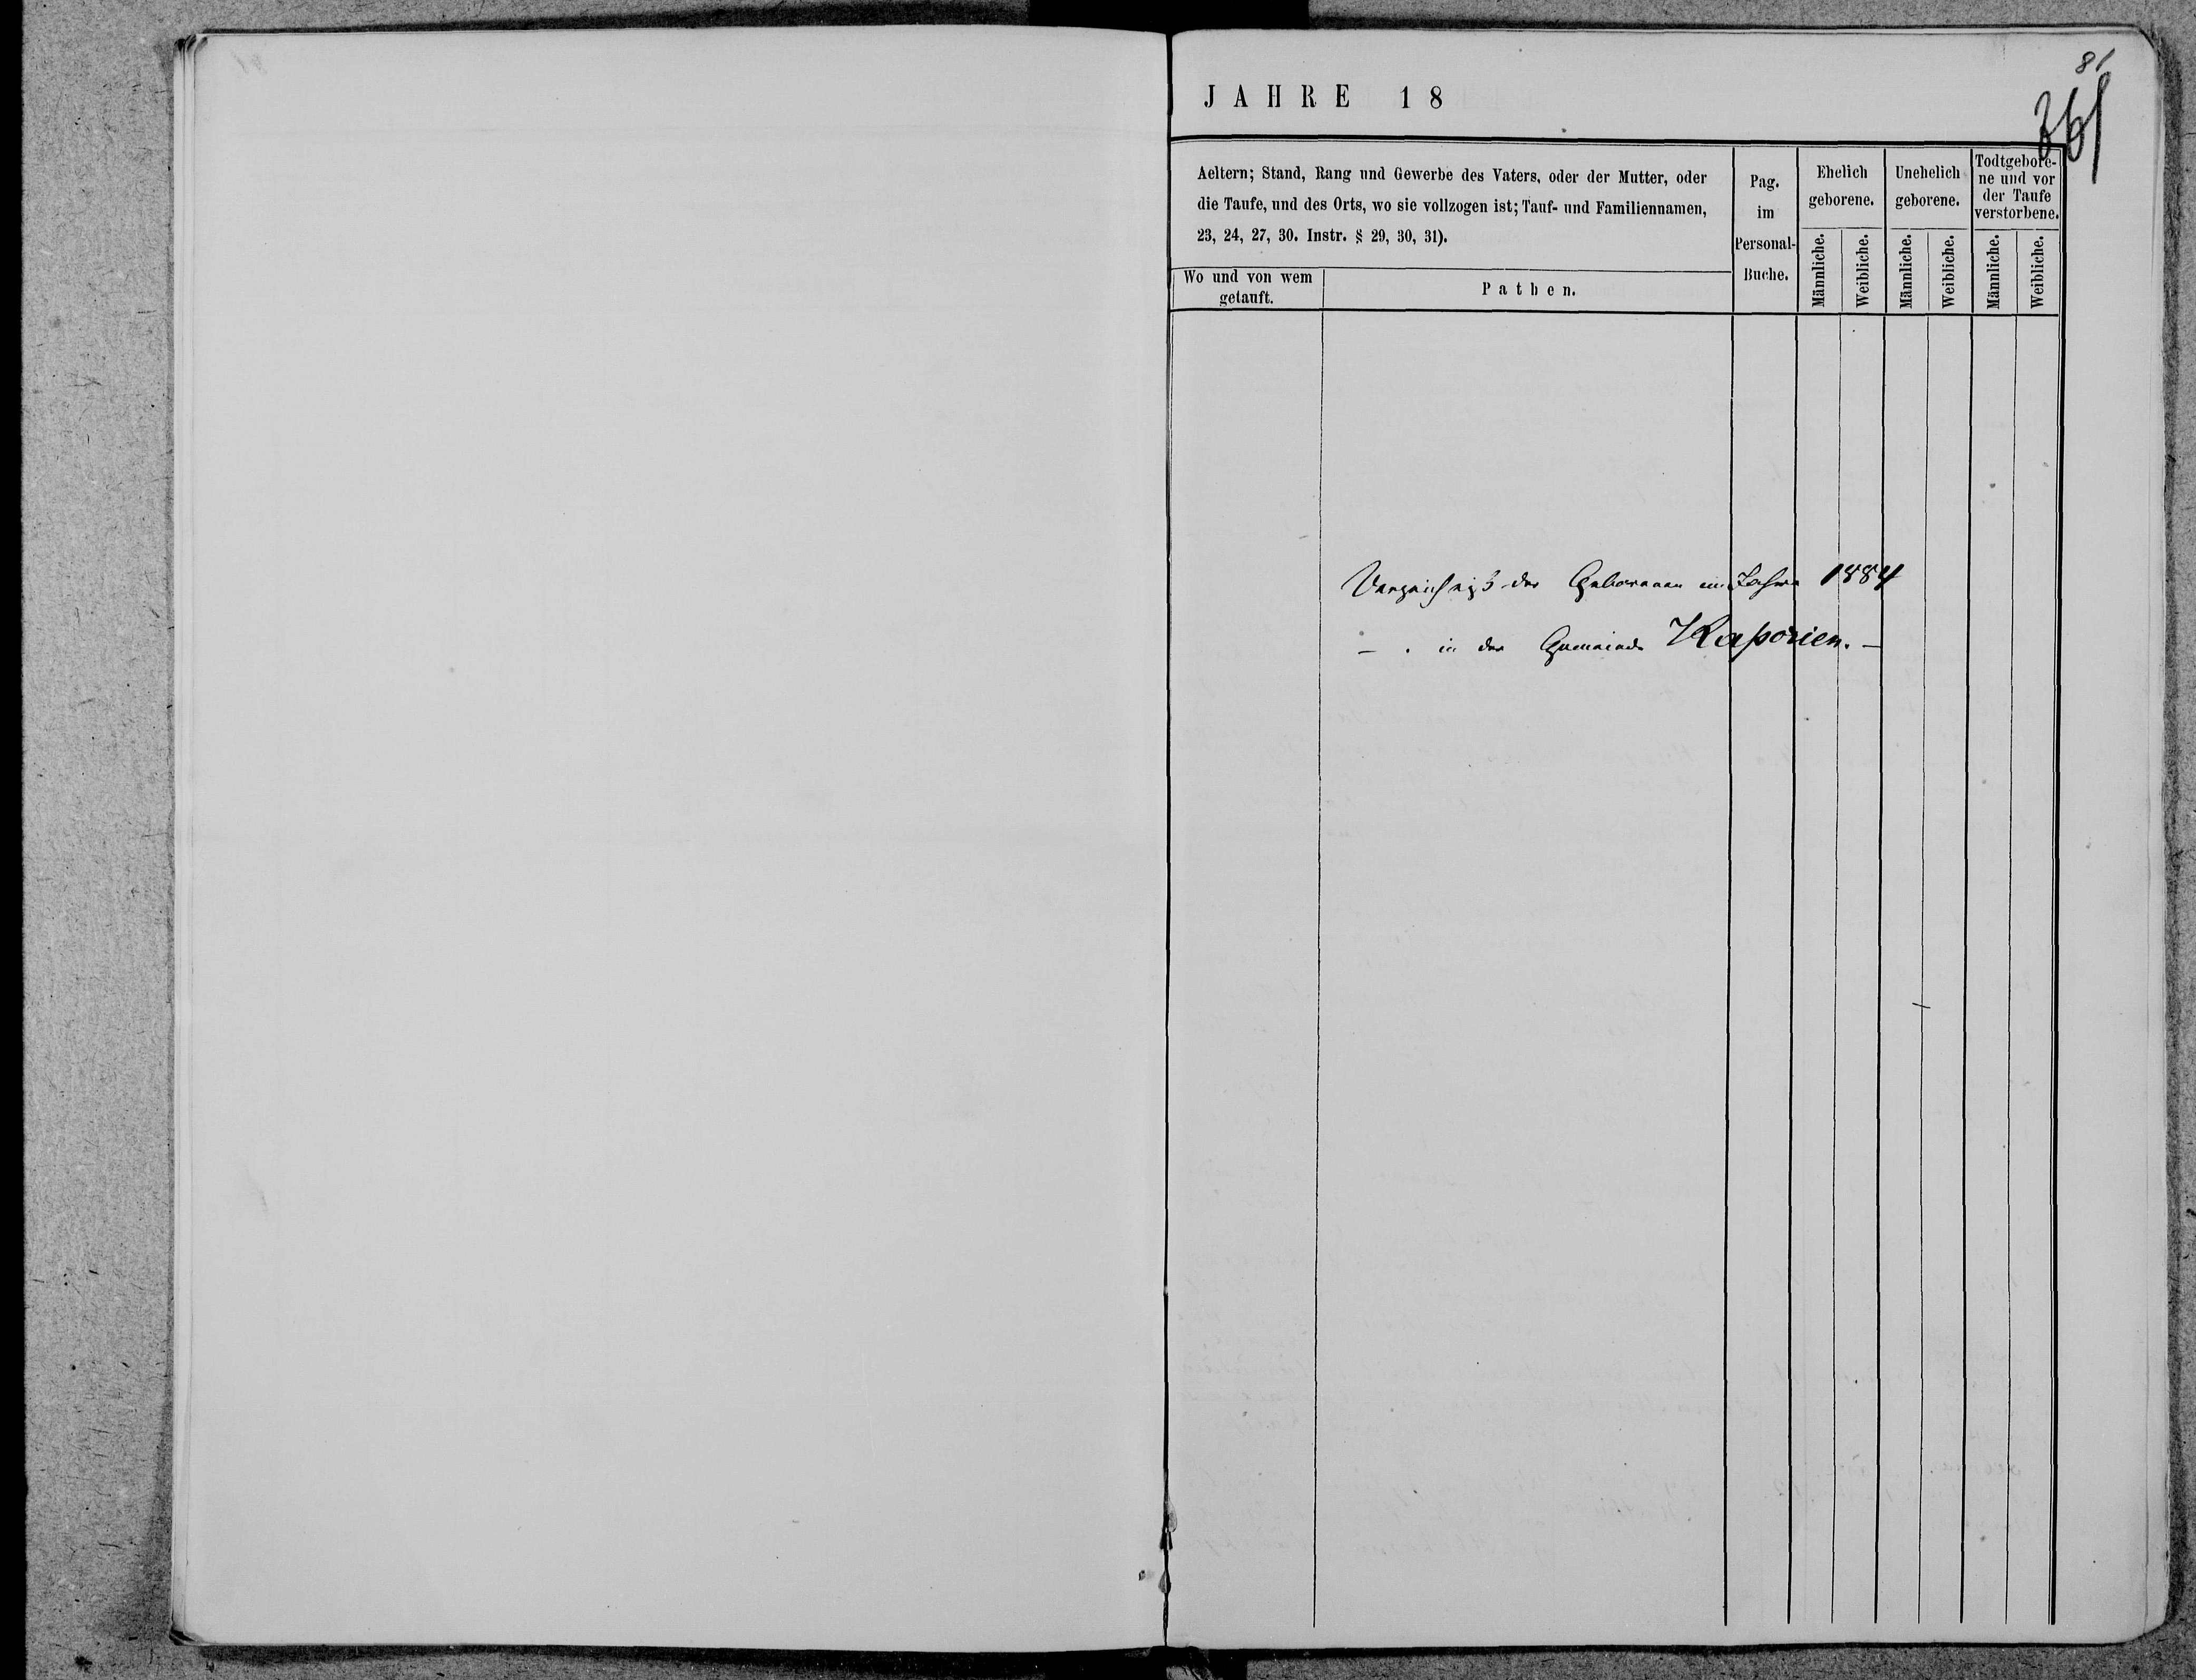 81
361
JAHRE 18
Aeltern; Stand, Rang und Gewerbe des Vaters, oder der Mutter, oder
die Taufe, und des Orts, wo sie vollzogen ist; Tauf- und Familiennamen,
23, 24, 27, 30. Instr. § 29, 30, 31).
Wo und von wem
getauft.
Pathen.
Pag.
im
Personal-
Buche.
Ehelich
geborene.
Männliche.
Weibliche.
Unehelich
geborene.
Männliche.
Weibliche.
Todtgebore-
ne und vor
der Taufe
verstorbene.
Männliche.
Weibliche.
Verzeichniß der Geborenen im Jahre 1884
– . in der Gemeinde Kaporien. –